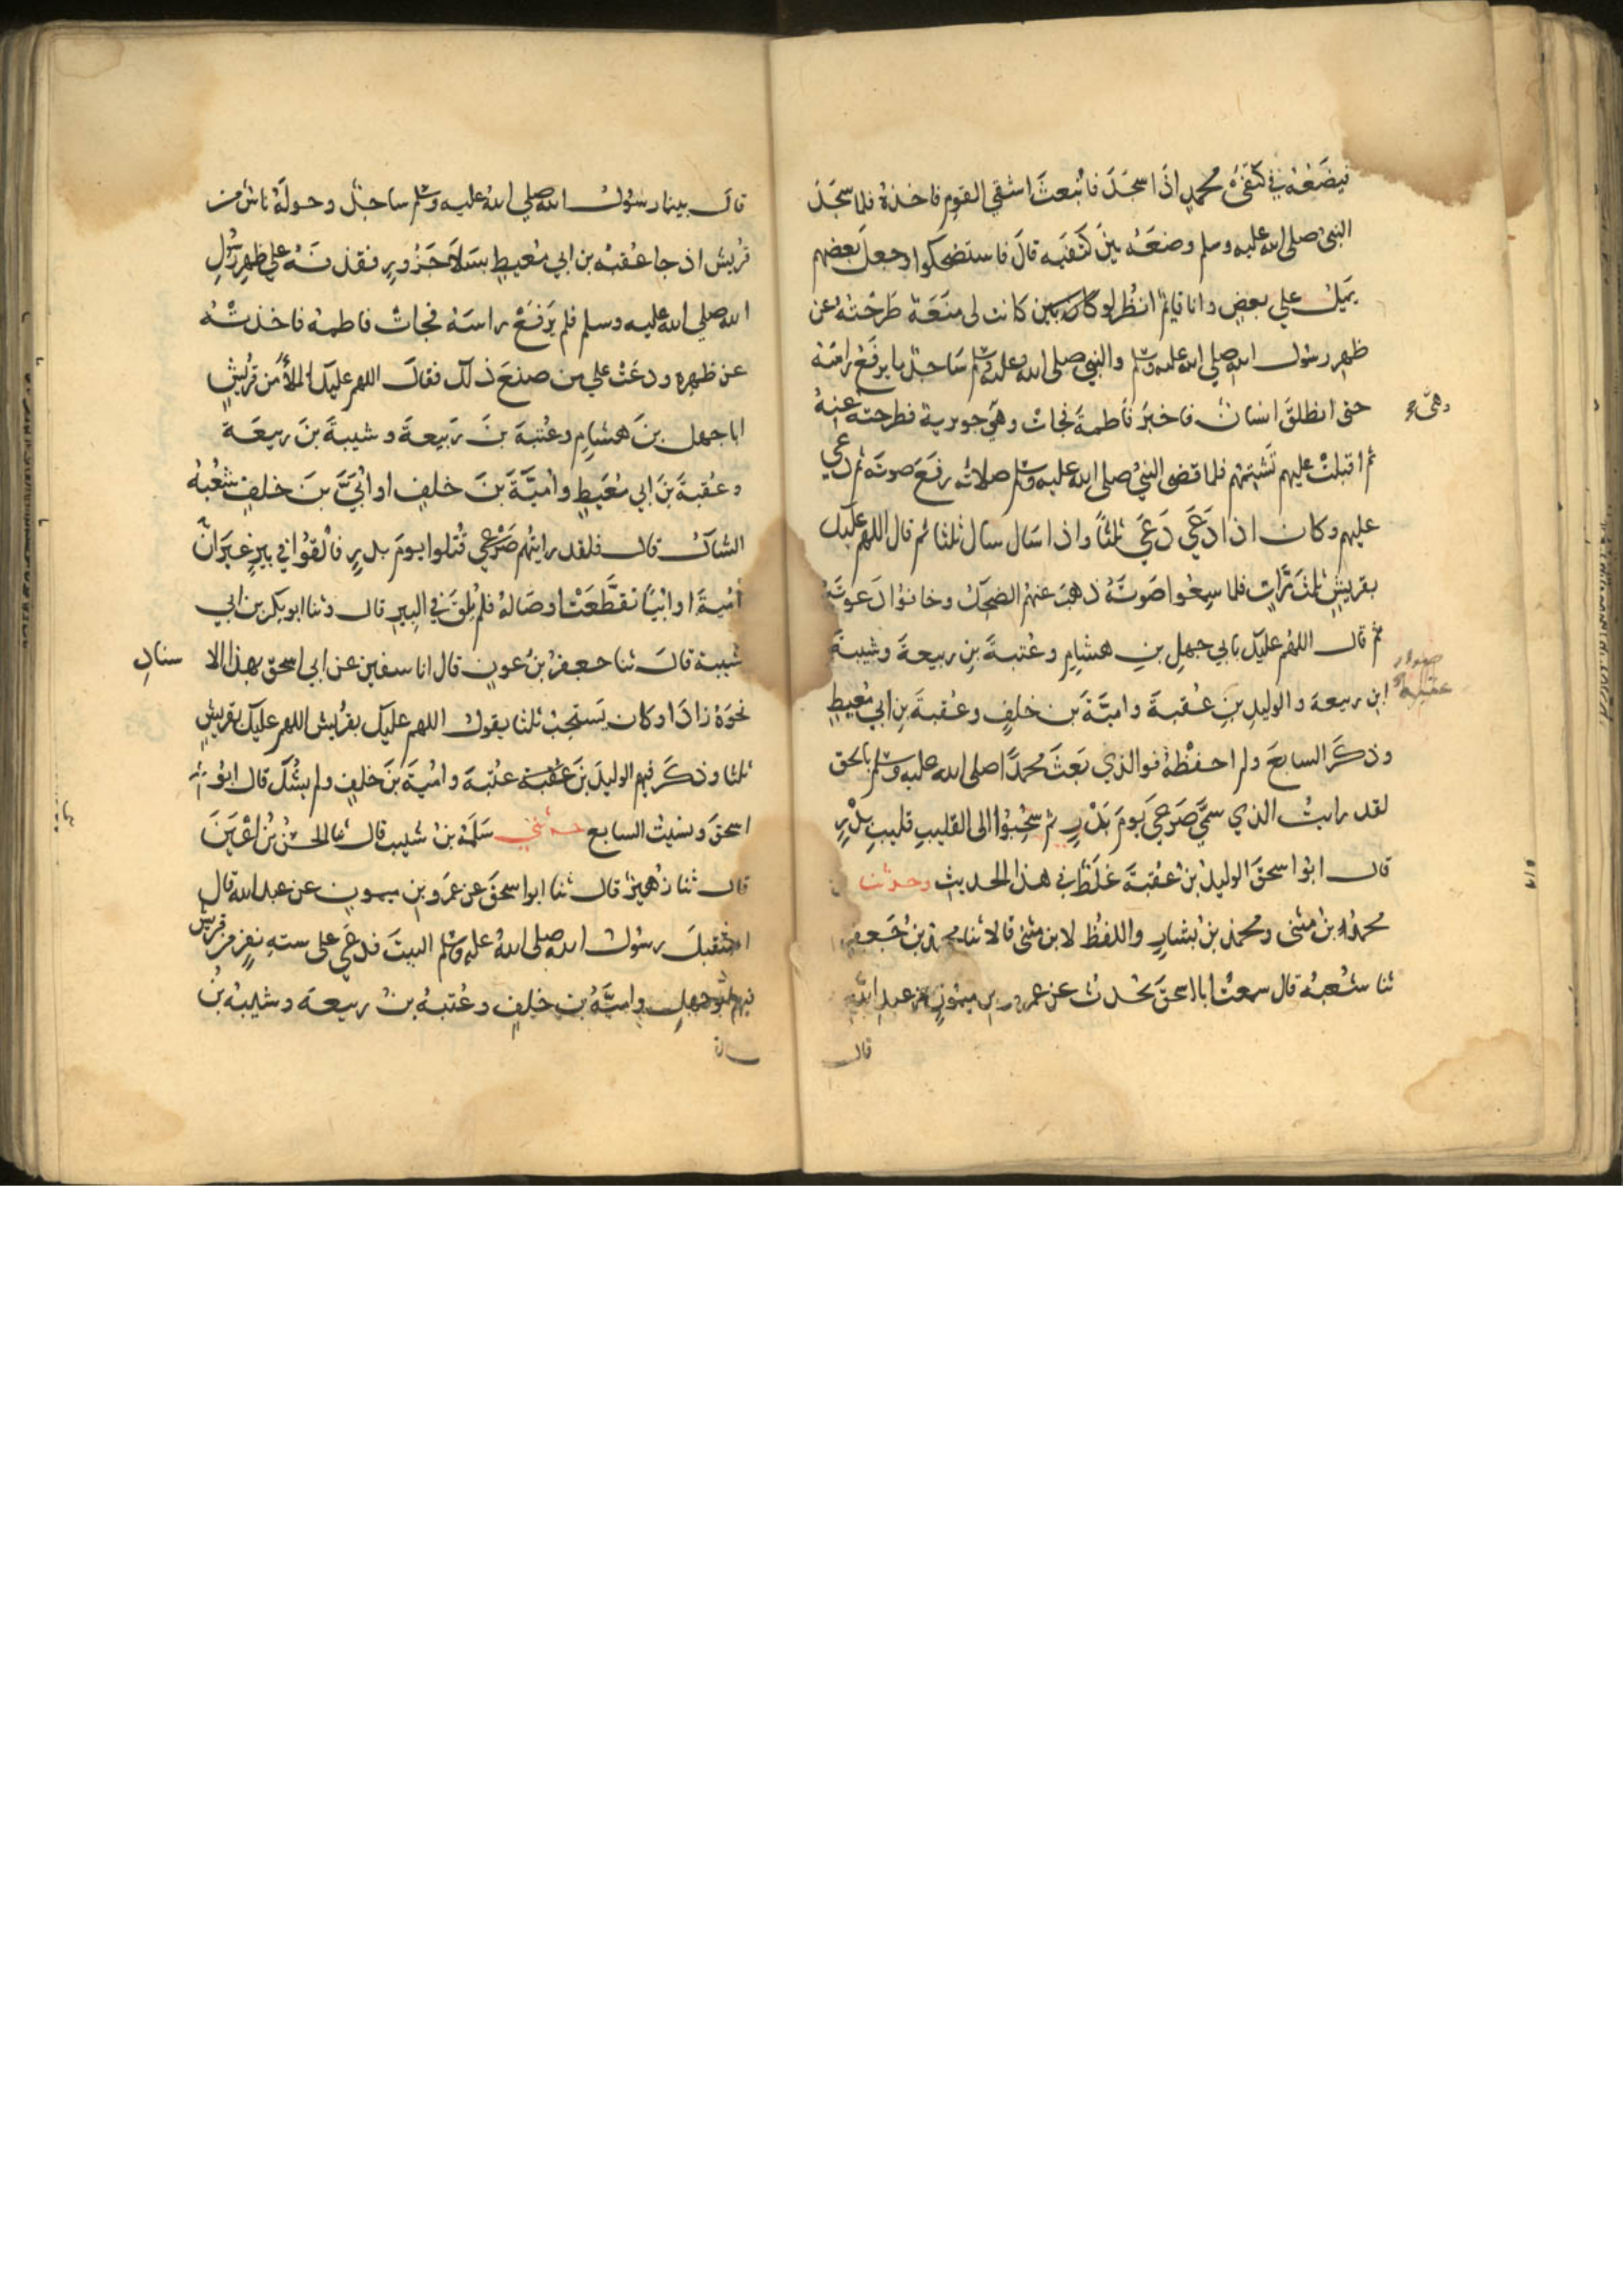 فيضعه في كتفي محمد اذا سجد فانبعث اشقي القوم فاخذه فلما سجد
النبي صلي الله عليه وسلم وضعه بين كتفيه قال فاستضحكوا وجعل بعضهم
يميل علي بعض وانا قايم انظر لو كانت لي منعة طرحته عن
ظهر رسول الله صلي الله عليه وسلم والنبي صلي الله عليه وسلم ساجد ما يرفع راسه
حتي انطلق انسان فاخبر فاطمة فجات وهي جويرية فطرحته عنه
ثم اقبلت عليهم تشتمهم فلما قضي النبي صلي الله عليه وسلم صلاته رفع صوته ثم دعي
عليهم وكان اذا دعي دعي ثلثا واذا سال سال ثلثا ثم قال اللهم عليك
بقريش ثلث مرات فلما سمعوا صوته ذهب عنهم الضحك وخافوا دعوته
ثم قال اللهم عليك بابي جهل بن هشام وعتبة بن ربيعة وشيبة
ابن ربيعة والوليد بن عقبة وامية بن خلف وعقبة بن ابي معيط
وذكر السابع ولم احفظه فوالذي بعث محمدا صلي الله عليه وسلم بالحق
لقد رايت الذي سمي صرعي يوم بدر ثم سحبوا الي القليب قليب بدر
قال ابو اسحق الوليد بن عقبة غلط في هذا الحديث وحدثنا
محمد بن مثني ومحمد بن بشار واللفظ لابن مثني قالا ثنا محمد بن جعفر
ثنا شعبة قال سمعت ابا اسحق يحدث عن عمرو بن ميمون عن عبد الله
قال
قال بينما رسول الله صلي الله عليه وسلم ساجد وحوله ناس من
قريش اذ جا عقبة بن ابي معيط بسلا جزور فقذفه علي ظهر رسول
الله صلي الله عليه وسلم فلم يرفع راسه فجات فاطمة فاخذته
عن ظهره ودعت علي من صنع ذلك فقال اللهم عليك الملأ من قريش
ابا جهل بن هشام وعتبة بن ربيعة وشيبة بن ربيعة
وعقبة بن ابي معيط وامية بن خلف او ابي بن خلف شعبة
الشاك قال فلقد رايتهم صرعي قتلوا يوم بدر فالقوا في بير غير ان
امية او ابيا تقطعت اوصاله فلم يلق في البير قال وثنا ابو بكر بن ابي
شيبة قال ثنا جعفر بن عون قال انا سفين عن ابي اسحق بهذا الا سناد
نحوه زاد وكان يستحب ثلثا يقول اللهم عليك بقريش اللهم عليك بقريش
ثلثا وذكر فيهم الوليد بن عتبة وامية بن خلف ولم يشك قال ابو
اسحق ونسيت السابع حدثني سلمة بن شبيب قال ثنا الحسن بن اعين
قال ثنا زهير قال ثنا ابو اسحق عن عمرو بن ميمون عن عبد الله قال
استقبل رسول الله صلي الله عليه وسلم البيت فدعي علي ستة نفر من قريش
فيهم ابو جهل وامية بن خلف وعتبة بن ربيعة وشيبة بن